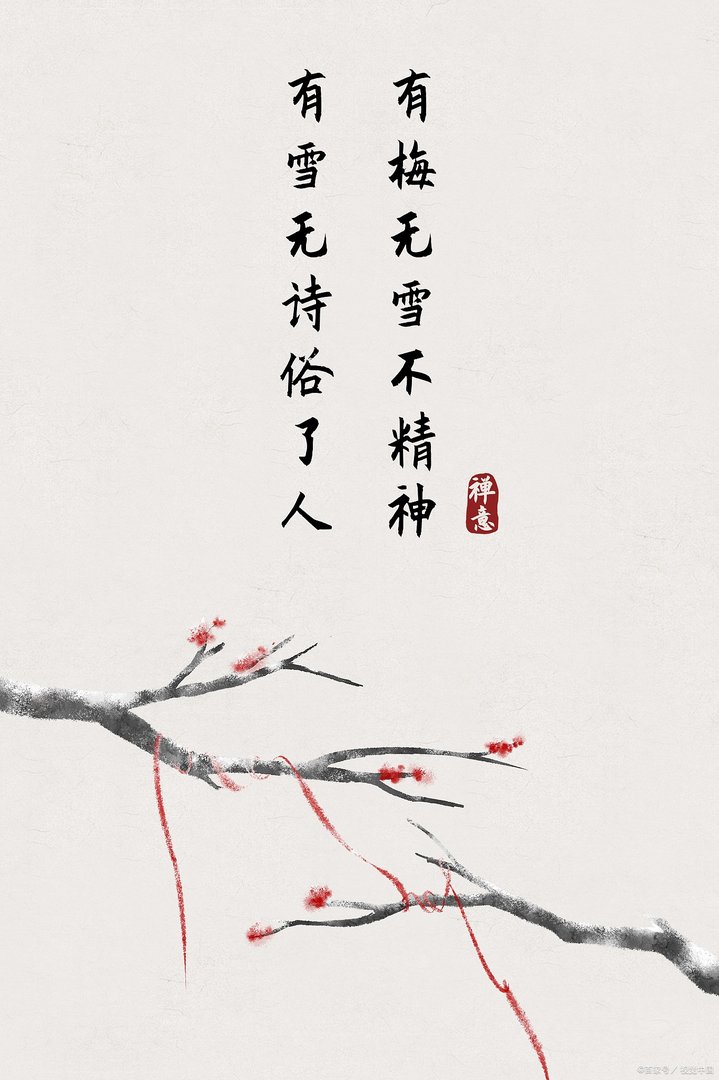 有梅无雪不精神
有雪无诗俗了人
禅意
©百家号／视觉中国